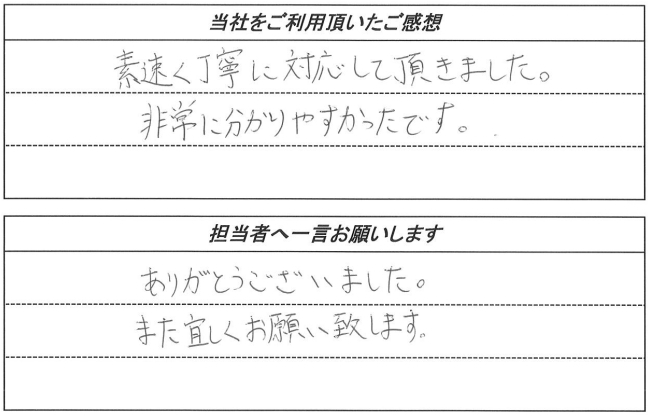 当社をご利用頂いたご感想
素速く丁寧に対応して頂きました。
非常に分かりやすかったです。
担当者へ一言お願いします
ありがとうございました。
また宜しくお願い致します。